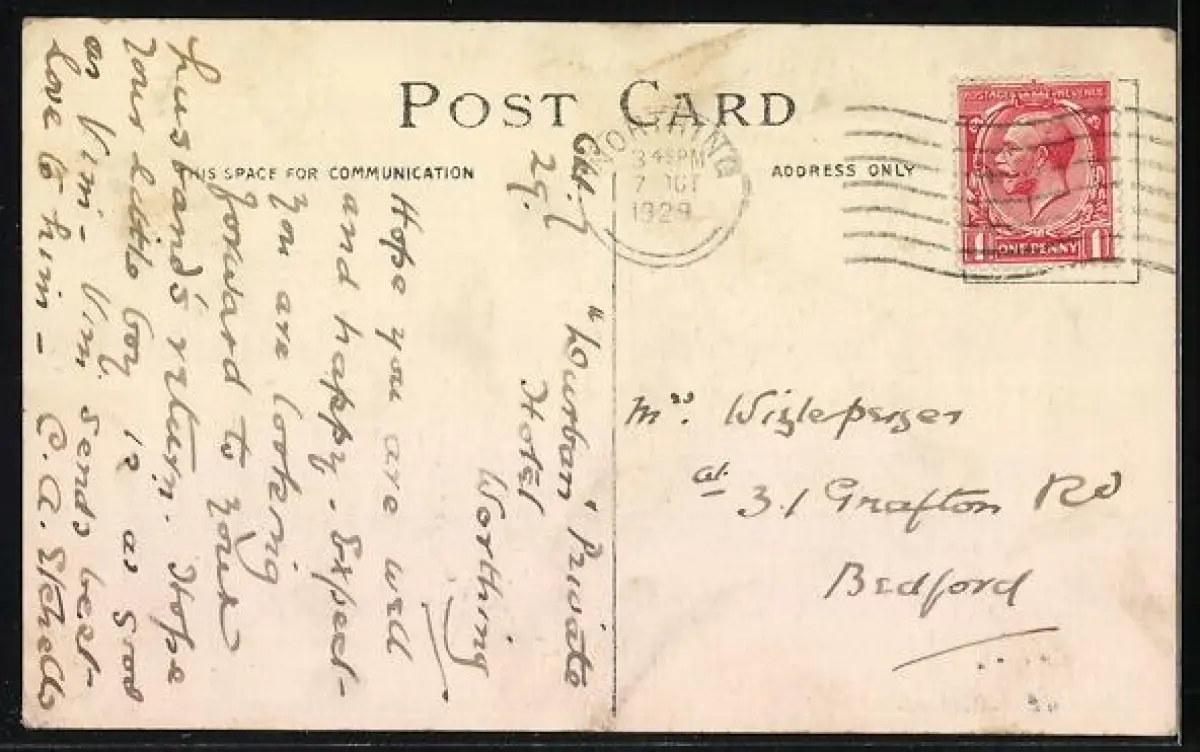 POST CARD
THIS SPACE FOR COMMUNICATION
ADDRESS ONLY
WORTHING
3 45 PM
7 OCT
1929
POSTAGE & REVENUE
1 ONE PENNY 1
Oct. 7
29.
"Durban" Private
Hotel
Worthing
Hope you are well
and happy. Expect-
you are looking
forward to your
husband's return. Hope
your little boy is as good
as Vim - Vim sends best-
love to him - C. A. Etchells
Mrs.
at 31 Grafton Rd
Bedford